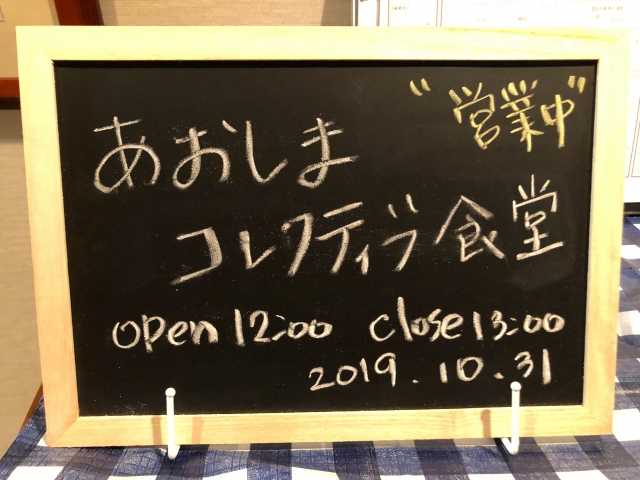 "営業中"
あおしま
コレクティヴ食堂
open 12:00 close 13:00
2019.10.31